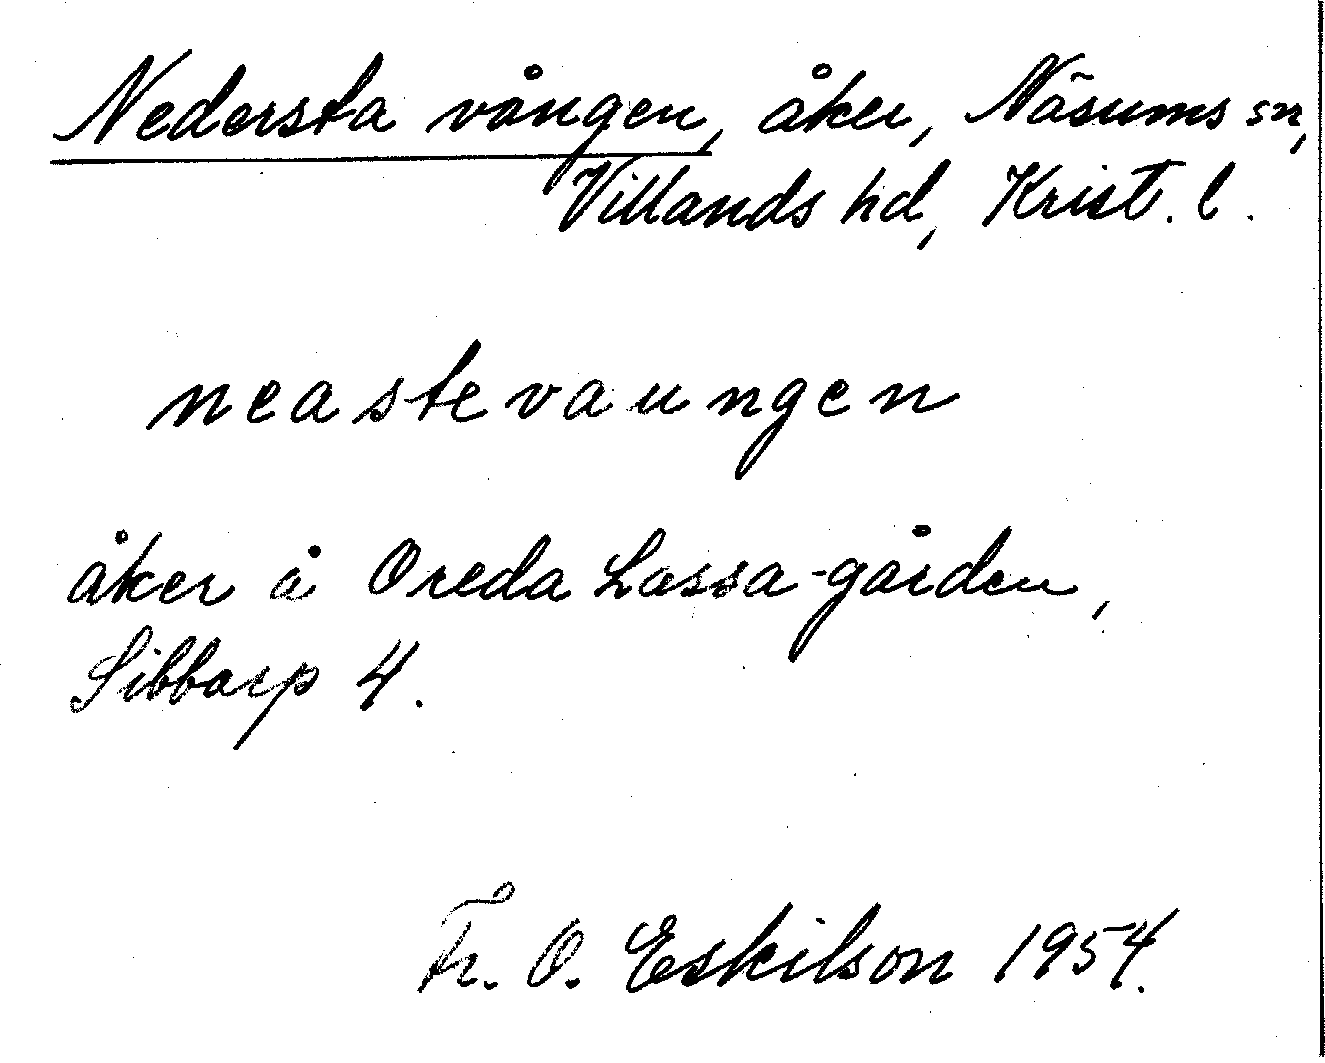 Nedersta vången, åker, Näsums sn,
Villands hd, Krist. l.
neastevaungen
åker å Oreda Lassa-gården,
Sibbarp 4.
Fr. O. Eskilson 1954.